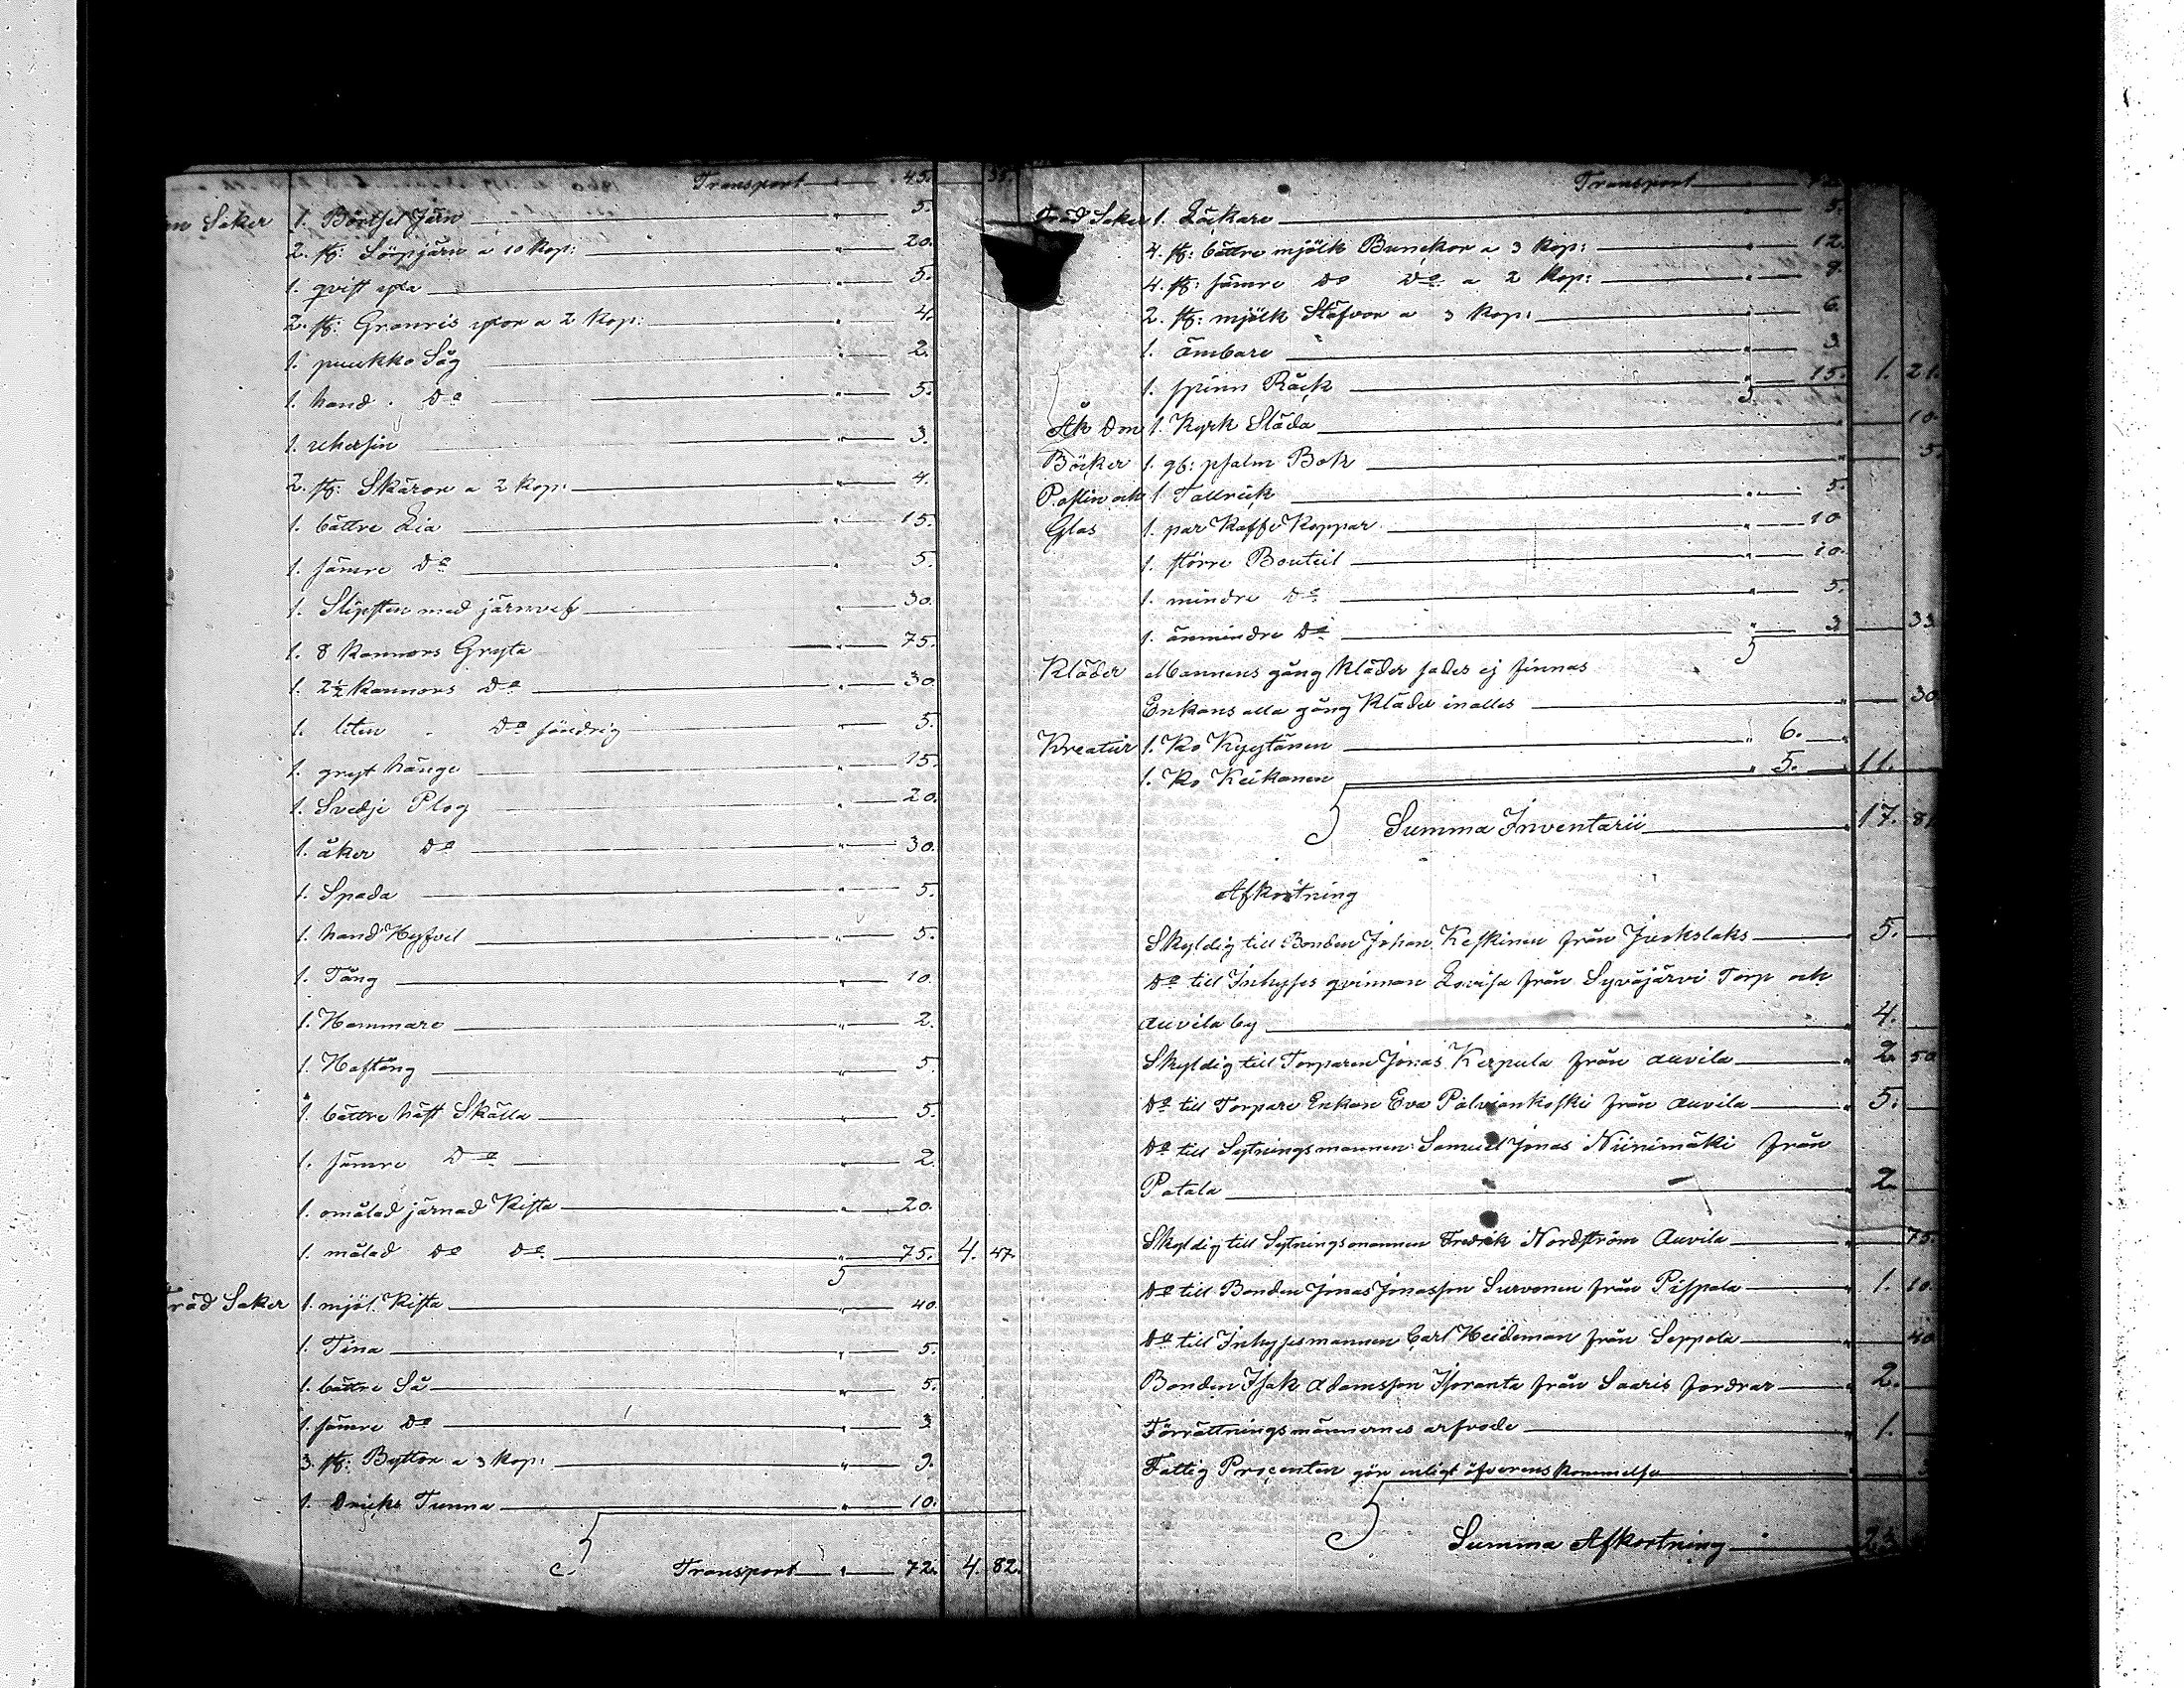 Transport 45. 35.
Saker 1. Börtsel Järn 5.
2. st: Löspjärn a 10 Kop: 20.
1. qvist yxa 5.
2. st: Granris yxor a 2 Kop: 4.
1. puukko Såg 2.
1. hand Do 5.
1. 3.
2. st: Skäror a 2 Kop: 4.
1. bättre Lia 15.
1. sämre Do 5.
1. Slipsten med järnvef 30.
1. 8 Kannors Gryta 75.
1. 2½ Kannors Do 30.
1. liten Do söndrig 5.
1. gryt hänge 15.
1. Svedje Plog 20.
1. åker Do 30.
1. Spada 5.
1. hand Hyfvel 5.
1. Tång 10.
1. Hammare 2.
1. Hoftång 5.
1. bättre häst Skälla 5.
1. sämre Do 2.
1. omålad järnad Kista 20.
1. målad Do Do 75. 4. 47.
Träd Saker 1. mjöl Kista 40.
1. Tina 5.
1. bättre Så 5.
1. sämre Do 3.
3. st: Byttor a 3 Kop: 9.
1. Dricks Tunna 10.
Transport 72. 4. 82.
Transport
Träd Saker 1. Låckare 5.
4. st: bättre mjölk Bunckor a 3 Kop: 12.
4. st: sämre Do Do a 2 Kop: 8.
2. st: mjölk Stäfvor a 3 Kop: 6.
1. Ämbare 3.
1. spinn Råck 15. 1. 21.
Åk Don 1. Kyrk Släda 10.
Böcker 1. gl: psalm Bok 5.
P.oslin och 1. Tallrick 5.
Glas 1. par Kaffe Koppar 10
1. större Bouteil 10.
1. mindre Do 5.
1. änmindre Do 3. 33.
Kläder Mannens gång Kläder sades ej finnas
Enkans alla gång Kläder inalles 30
Kreatur 1. Ko Kyytönen 6.
1. Ko Keikonen 5. 11.
Summa Inventarii 17. 81
Afkortning
Skyldig till Bonden Johan Keskinen från Juokslaks 5.
Do till Inhyses qvinnan Lovisa från Syväjärvi Torp och
Auvila by 4.
Skyldig till Torparen Jonas Kerpula från Auvila 2. 50
Do till Torpare Enkan Eva Palviankoski från Auvila 5.
Do till Sytningsmannen Samuel Jonas Niinimäki från
Patala 2.
Skyldig till Sytningsmannen Fredrik Nordström Auvila 75.
Do till Bonden Jonas Jonasson Survonen från Pispala 1. 10.
Do till Inhysesmannen Carl Heideman från Seppola 40
Bonden Isak Adamsson Isoranta från Saaris fordrar 2.
Förrättningsmännernes arfvode 1.
Fattig Procenten gör enligt öfverenskommelse
Summa Afkortning